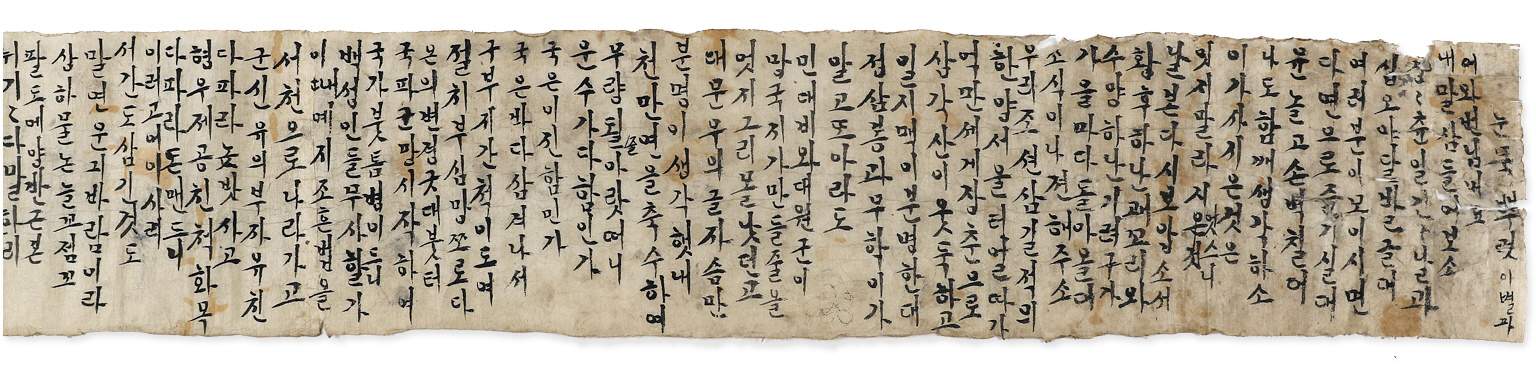 눈물 뿌렷 이별파
어와
내말삼 들어보소
츈일 긴々날과
십오야 달발근대
여러분이 모이시면
다면으로 즐기실대
윤놀고 손벽칠여
나도함깨 생각하소
이가사 지은것은
엇지말라 지엿스니
날본다시 보압소서
황후하난 꾀꼬리와
수양하난 기력구가
가을마다 돌아올대
소식이나 젼해주소
우리조션 삼길적의
한양서울 터열따가
억만세게 장춘으로
삼각산이 웃둑하고
일지맥이 분명한대
졍삼봉과 무학이가
알고또아라도
민대비와 대원군이
망국지가 만들줄을
엇지그리 모낫던고
대문무의 굴자슴만
분명이 생각헛내
천만연을 축수하며
무량될줄 아랏떠니
운수가 다함인가
국은이 진함민가
국은바다 삼겨나서
구부지간 척이도여
절치부심 망쪼로다
본의변졍 굿대붓터
국파군말 시작하여
국가붓틈 병이드니
백셩인들 무사할가
이때예지 조흔법을
서천으로 나라가고
군신유의 부자유친
다파라 놉밧사고
형우제공 친척화목
다파라 돈맨드니
이러고야 이사려
서간도 삼긴것도
말면운긔 바람이라
상하물논 늘꼬졈꼬
팔도예 망한근본